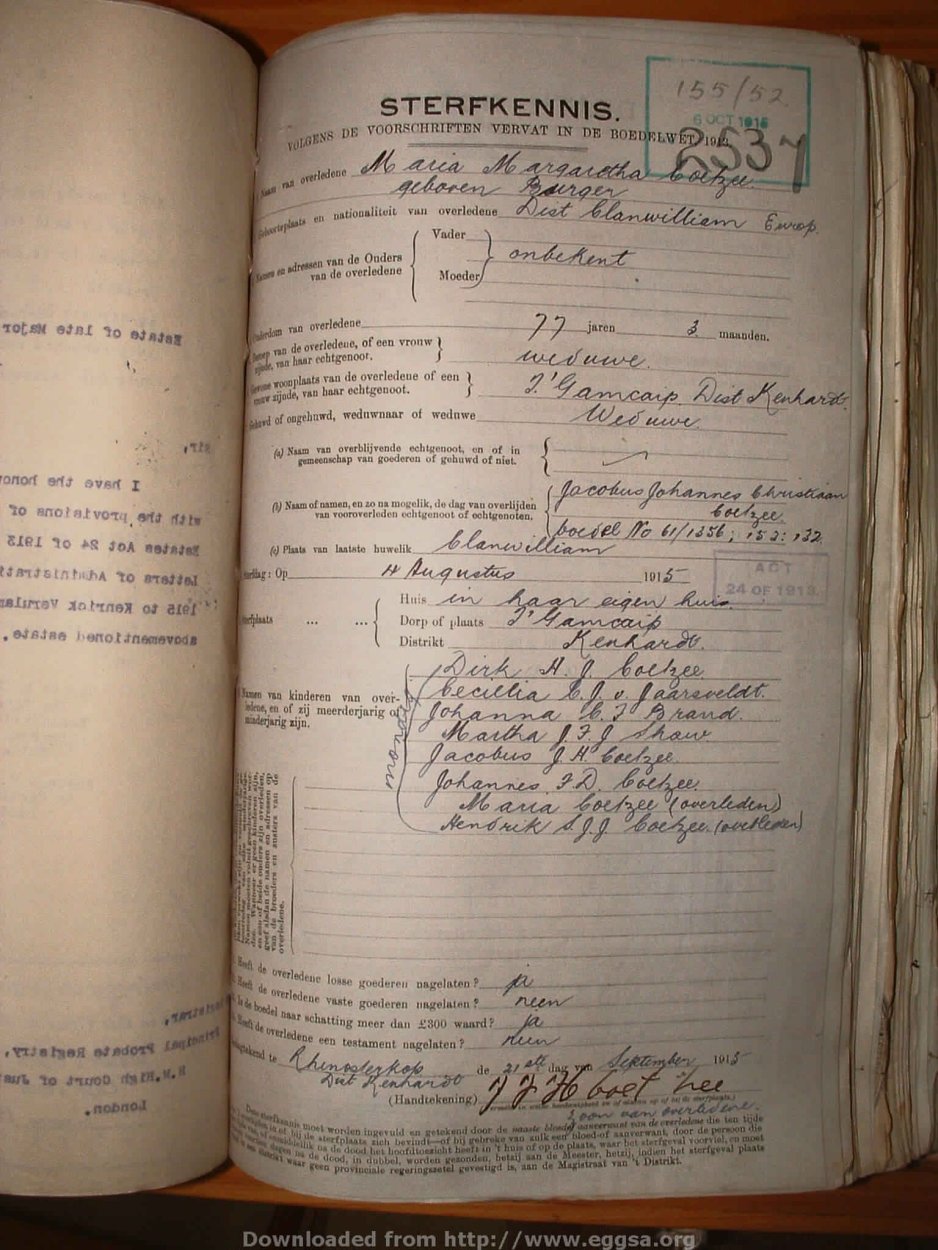 Estate of late Major
Sir,
I have the honour
with the provisions of
Estates Act 24 of 1913
Letters of Administration
1915 to Kenrick Verulam
abovementioned estate.
Registrar,
Principal Probate Registry,
H.M. High Court of Jus
London.
155/52
6 OCT 1915
2537
STERFKENNIS.
VOLGENS DE VOORSCHRIFTEN VERVAT IN DE BOEDELWET, 1913.
Naam van overledene Maria Margaretha Coetzee
geboren Burger
Geboorteplaats en nationaliteit van overledene Dist Clanwilliam Europ.
Namen en adressen van de Ouders van de overledene
Vader
onbekent
Moeder
Ouderdom van overledene 77 jaren 3 maanden.
Beroep van de overledene, of een vrouw
zijnde, van haar echtgenoot. weduwe.
Gewone woonplaats van de overledene of een
vrouw zijnde, van haar echtgenoot. T'Gamcaip Dist Kenhardt.
Gehuwd of ongehuwd, weduwnaar of weduwe Weduwe
(a) Naam van overblijvende echtgenoot, en of in
gemeenschap van goederen of gehuwd of niet.
(b) Naam of namen, en zo na mogelik, de dag van overlijden
van vooroverleden echtgenoot of echtgenoten.
Jacobus Johannes Christiaan
Coetzee
boedel No 61/1356; 152: 132
(c) Plaats van laatste huwelik Clanwilliam
Sterfdag: Op 4 Augustus 1915
ACT
24 OF 1913.
Sterfplaats ... ...
Huis in haar eigen huis
Dorp of plaats T'Gamcaip
Distrikt Kenhardt.
Namen van kinderen van over-
ledene, en of zij meerderjarig of
minderjarig zijn.
Dirk A. J. Coetzee
Cecillia C. J. v. Jaarsveldt.
Johanna C. F Brand.
Martha J. F. J Shaw
Jacobus J. H. Coetzee
Johannes F. D. Coetzee.
Maria Coetzee (overleden)
Hendrik S. J. J Coetzee. (overleden)
Heeft de overledene losse goederen nagelaten? ja
Heeft de overledene vaste goederen nagelaten? neen
Is de boedel naar schatting meer dan £300 waard? ja
Heeft de overledene een testament nagelaten? neen
Gedagtekend te Rhenosterkop de 21ste dag van September 1915
Dist Kenhardt
(Handtekening) J J H Coetzee
Zoon van overledene.
Deze sterfkennis moet worden ingevuld en getekend door de naaste bloed aanverwant van de overledene die ten tijde
van overlijden in of bij de sterfplaats zich bevindt—of bij gebreke van zulk een bloed-of aanverwant, door de persoon die
bij of onmiddellik na de dood het hoofdtoezicht heeft in 't huis of op de plaats, waar het sterfgeval voorviel, en moet
dagen na de dood, in dubbel, worden gezonden, hetzij aan de Meester, hetzij, indien het sterfgeval plaats
een distrikt waar geen provinciale regeringszetel gevestigd is, aan de Magistraat van 't Distrikt.
Downloaded from http://www.eggsa.org